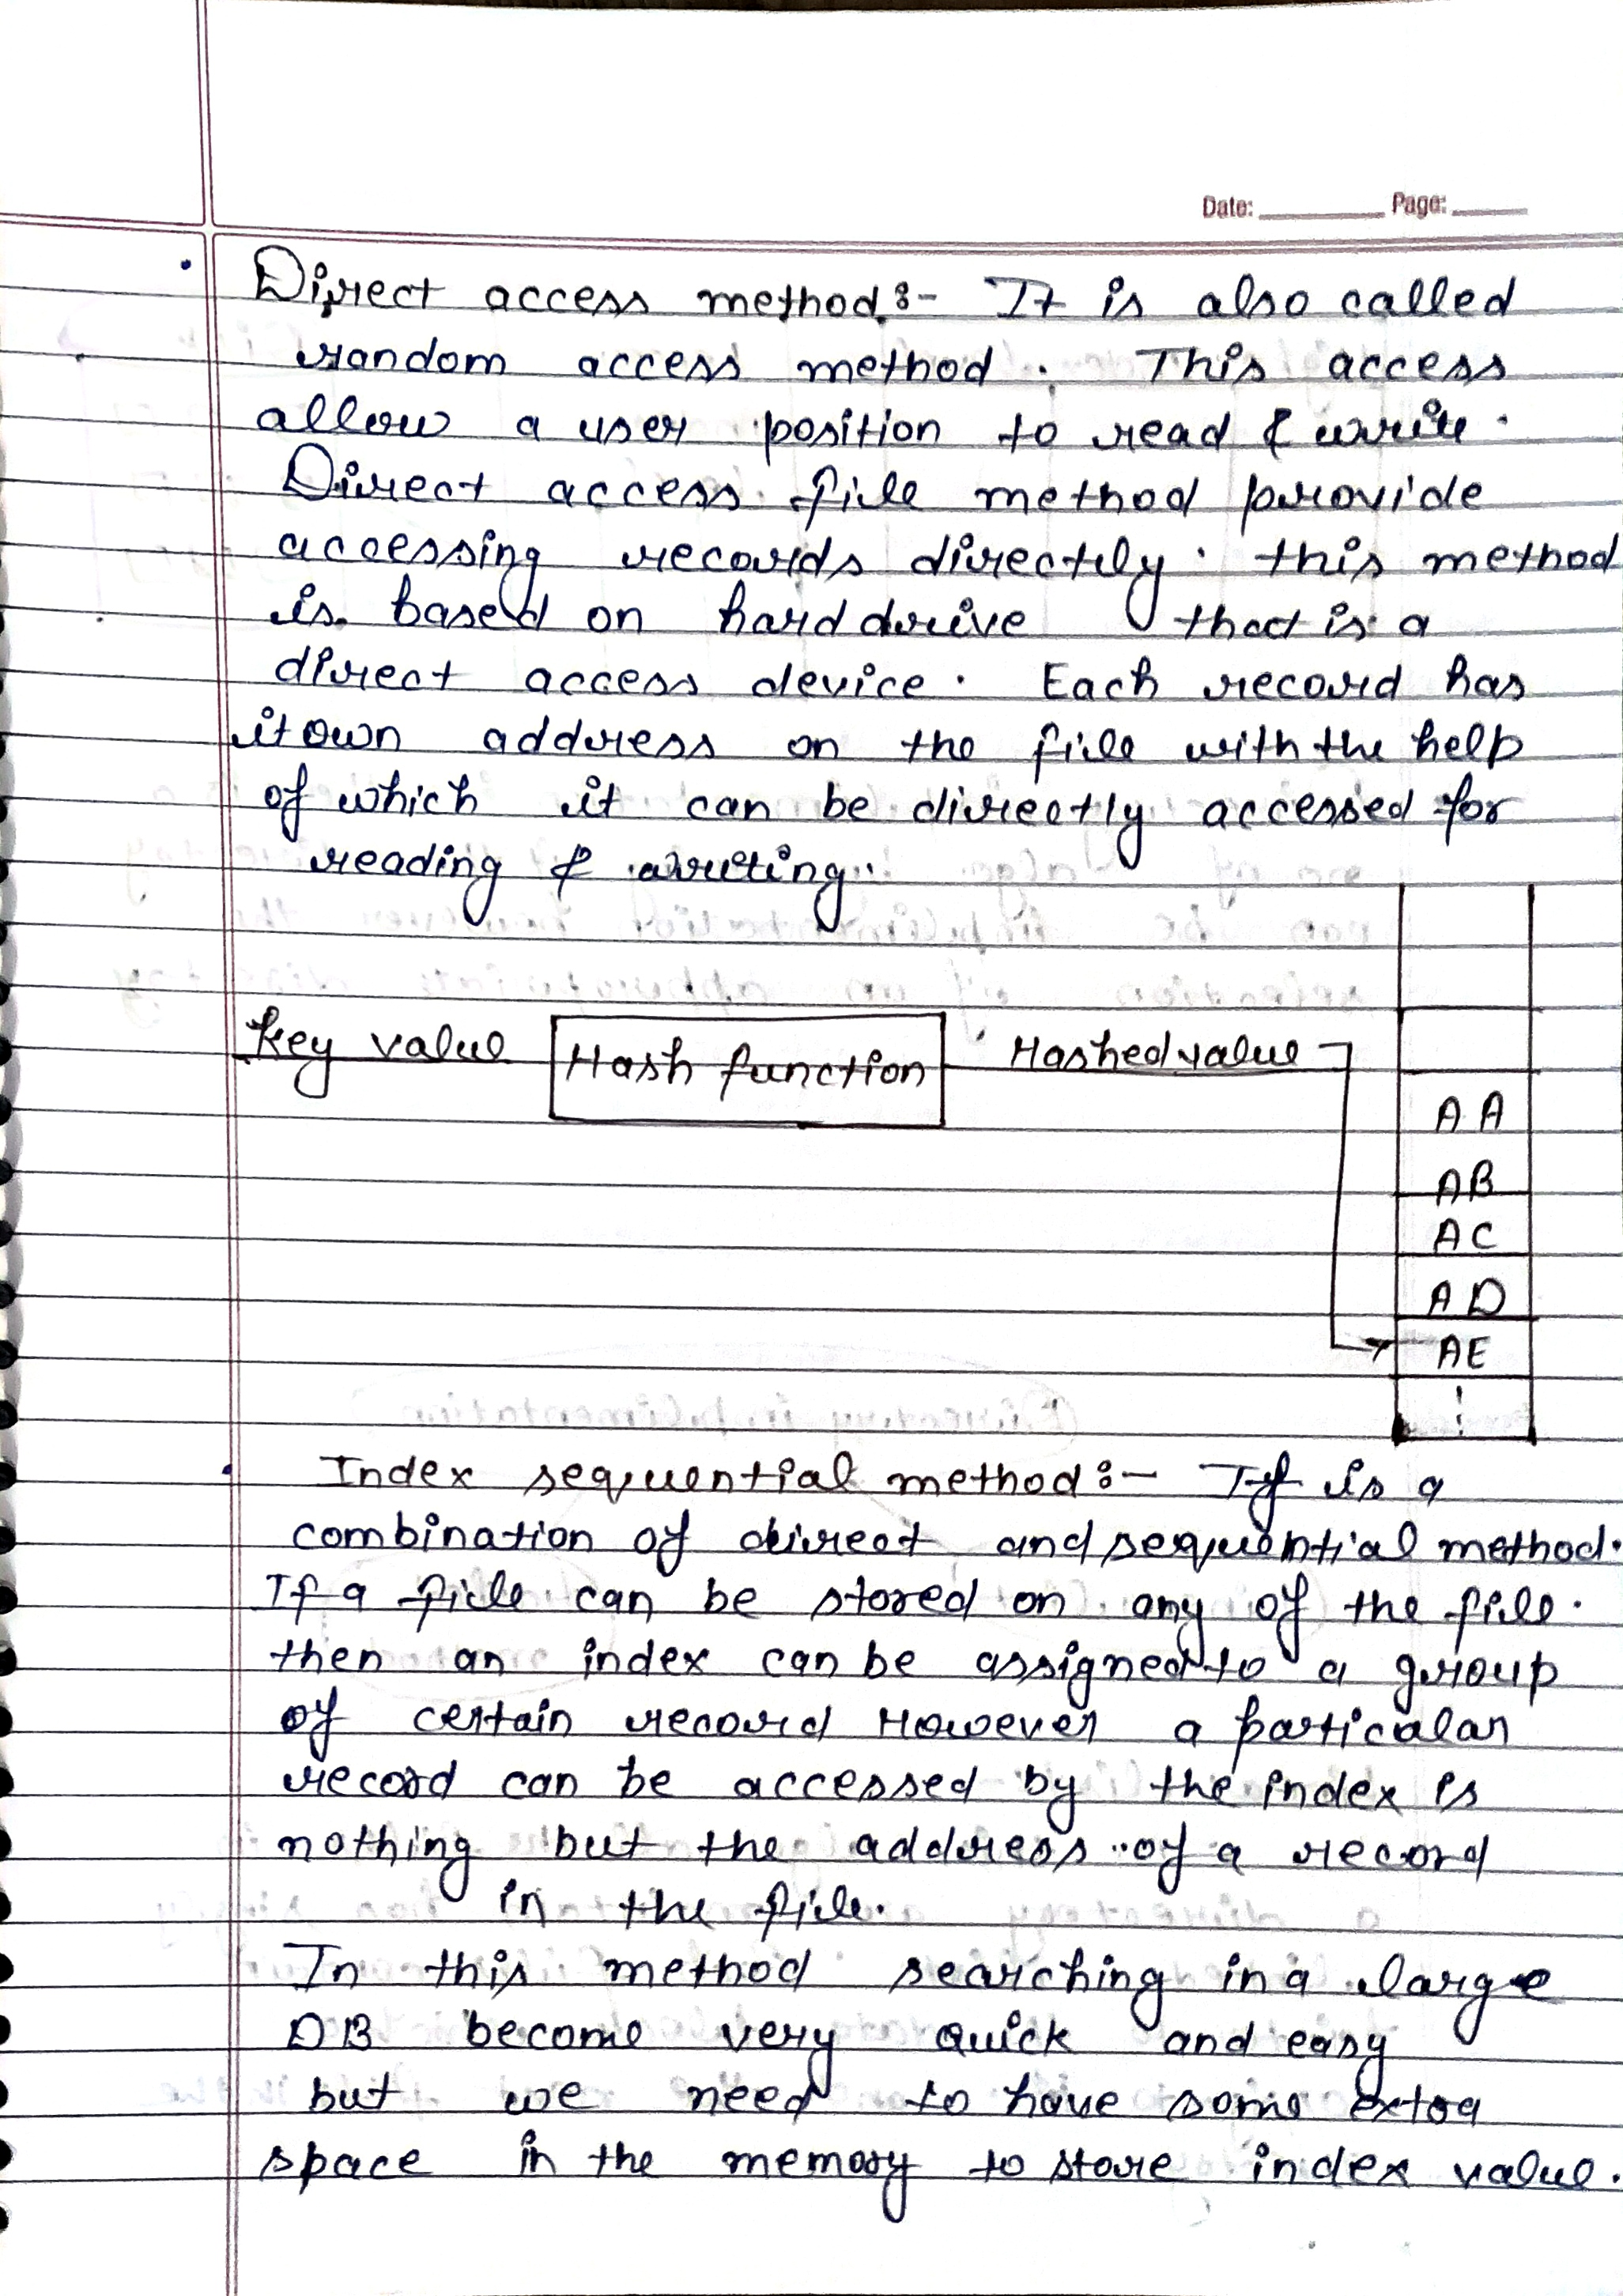 Date: Page:
Direct access method:- It is also called
random access method. This access
allow a user position to read & write.
Direct access file method provide
accessing records directely. this method
is based on hard drive that is a
direct access device. Each record has
it own address on the file with the help
of which it can be directly accessed for
reading & writing.
Key value Hash function Hashed value
A A
AB
AC
AD
AE
Index sequential method:- If is a
combination of direct and sequential method.
If a file can be stored on any of the file.
then an index can be assigned to a group
of certain record However a particalar
record can be accessed by the index is
nothing but the address of a record
in the file.
In this method searching in a large
DB become very quick and easy
but we need to have some extra
space in the memory to store index value.